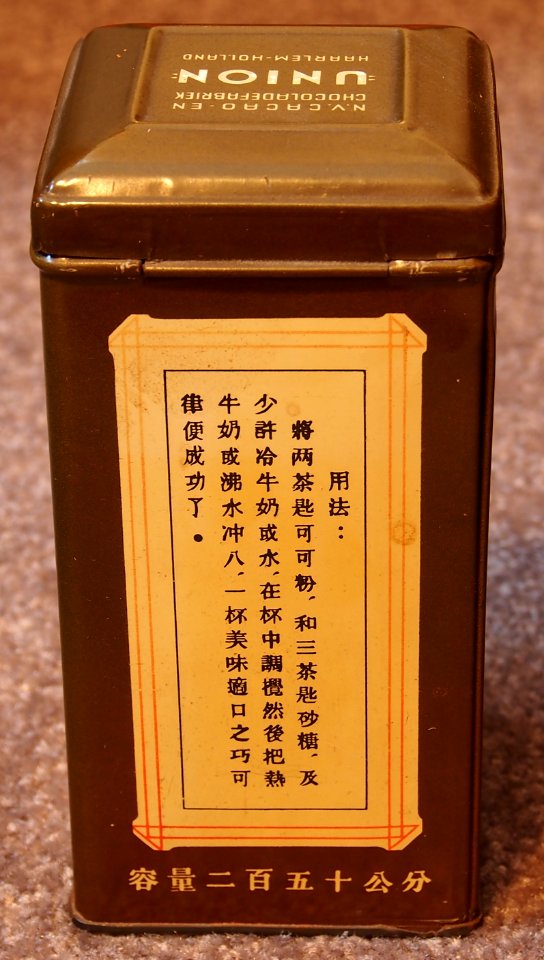 N.V. CACAO- EN
CHOCOLADEFABRIEK
UNION
HAARLEM-HOLLAND
用法：
將两茶匙可可粉、和三茶匙砂糖、及
少許冷牛奶或水、在杯中調攪然後把熱
牛奶或沸水冲八、一杯美味適口之巧可
律便成功了。
容量二百五十公分